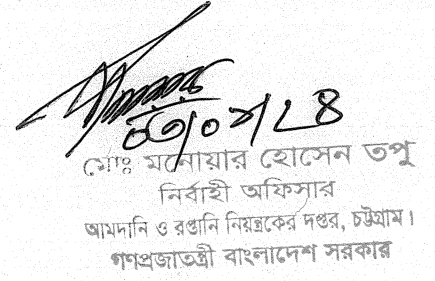 মোঃ মনোয়ার হোসেন তপু
নির্বাহী অফিসার
আমদানি ও রপ্তানি নিয়ন্ত্রকের দপ্তর, চট্টগ্রাম।
গণপ্রজাতন্ত্রী বাংলাদেশ সরকার